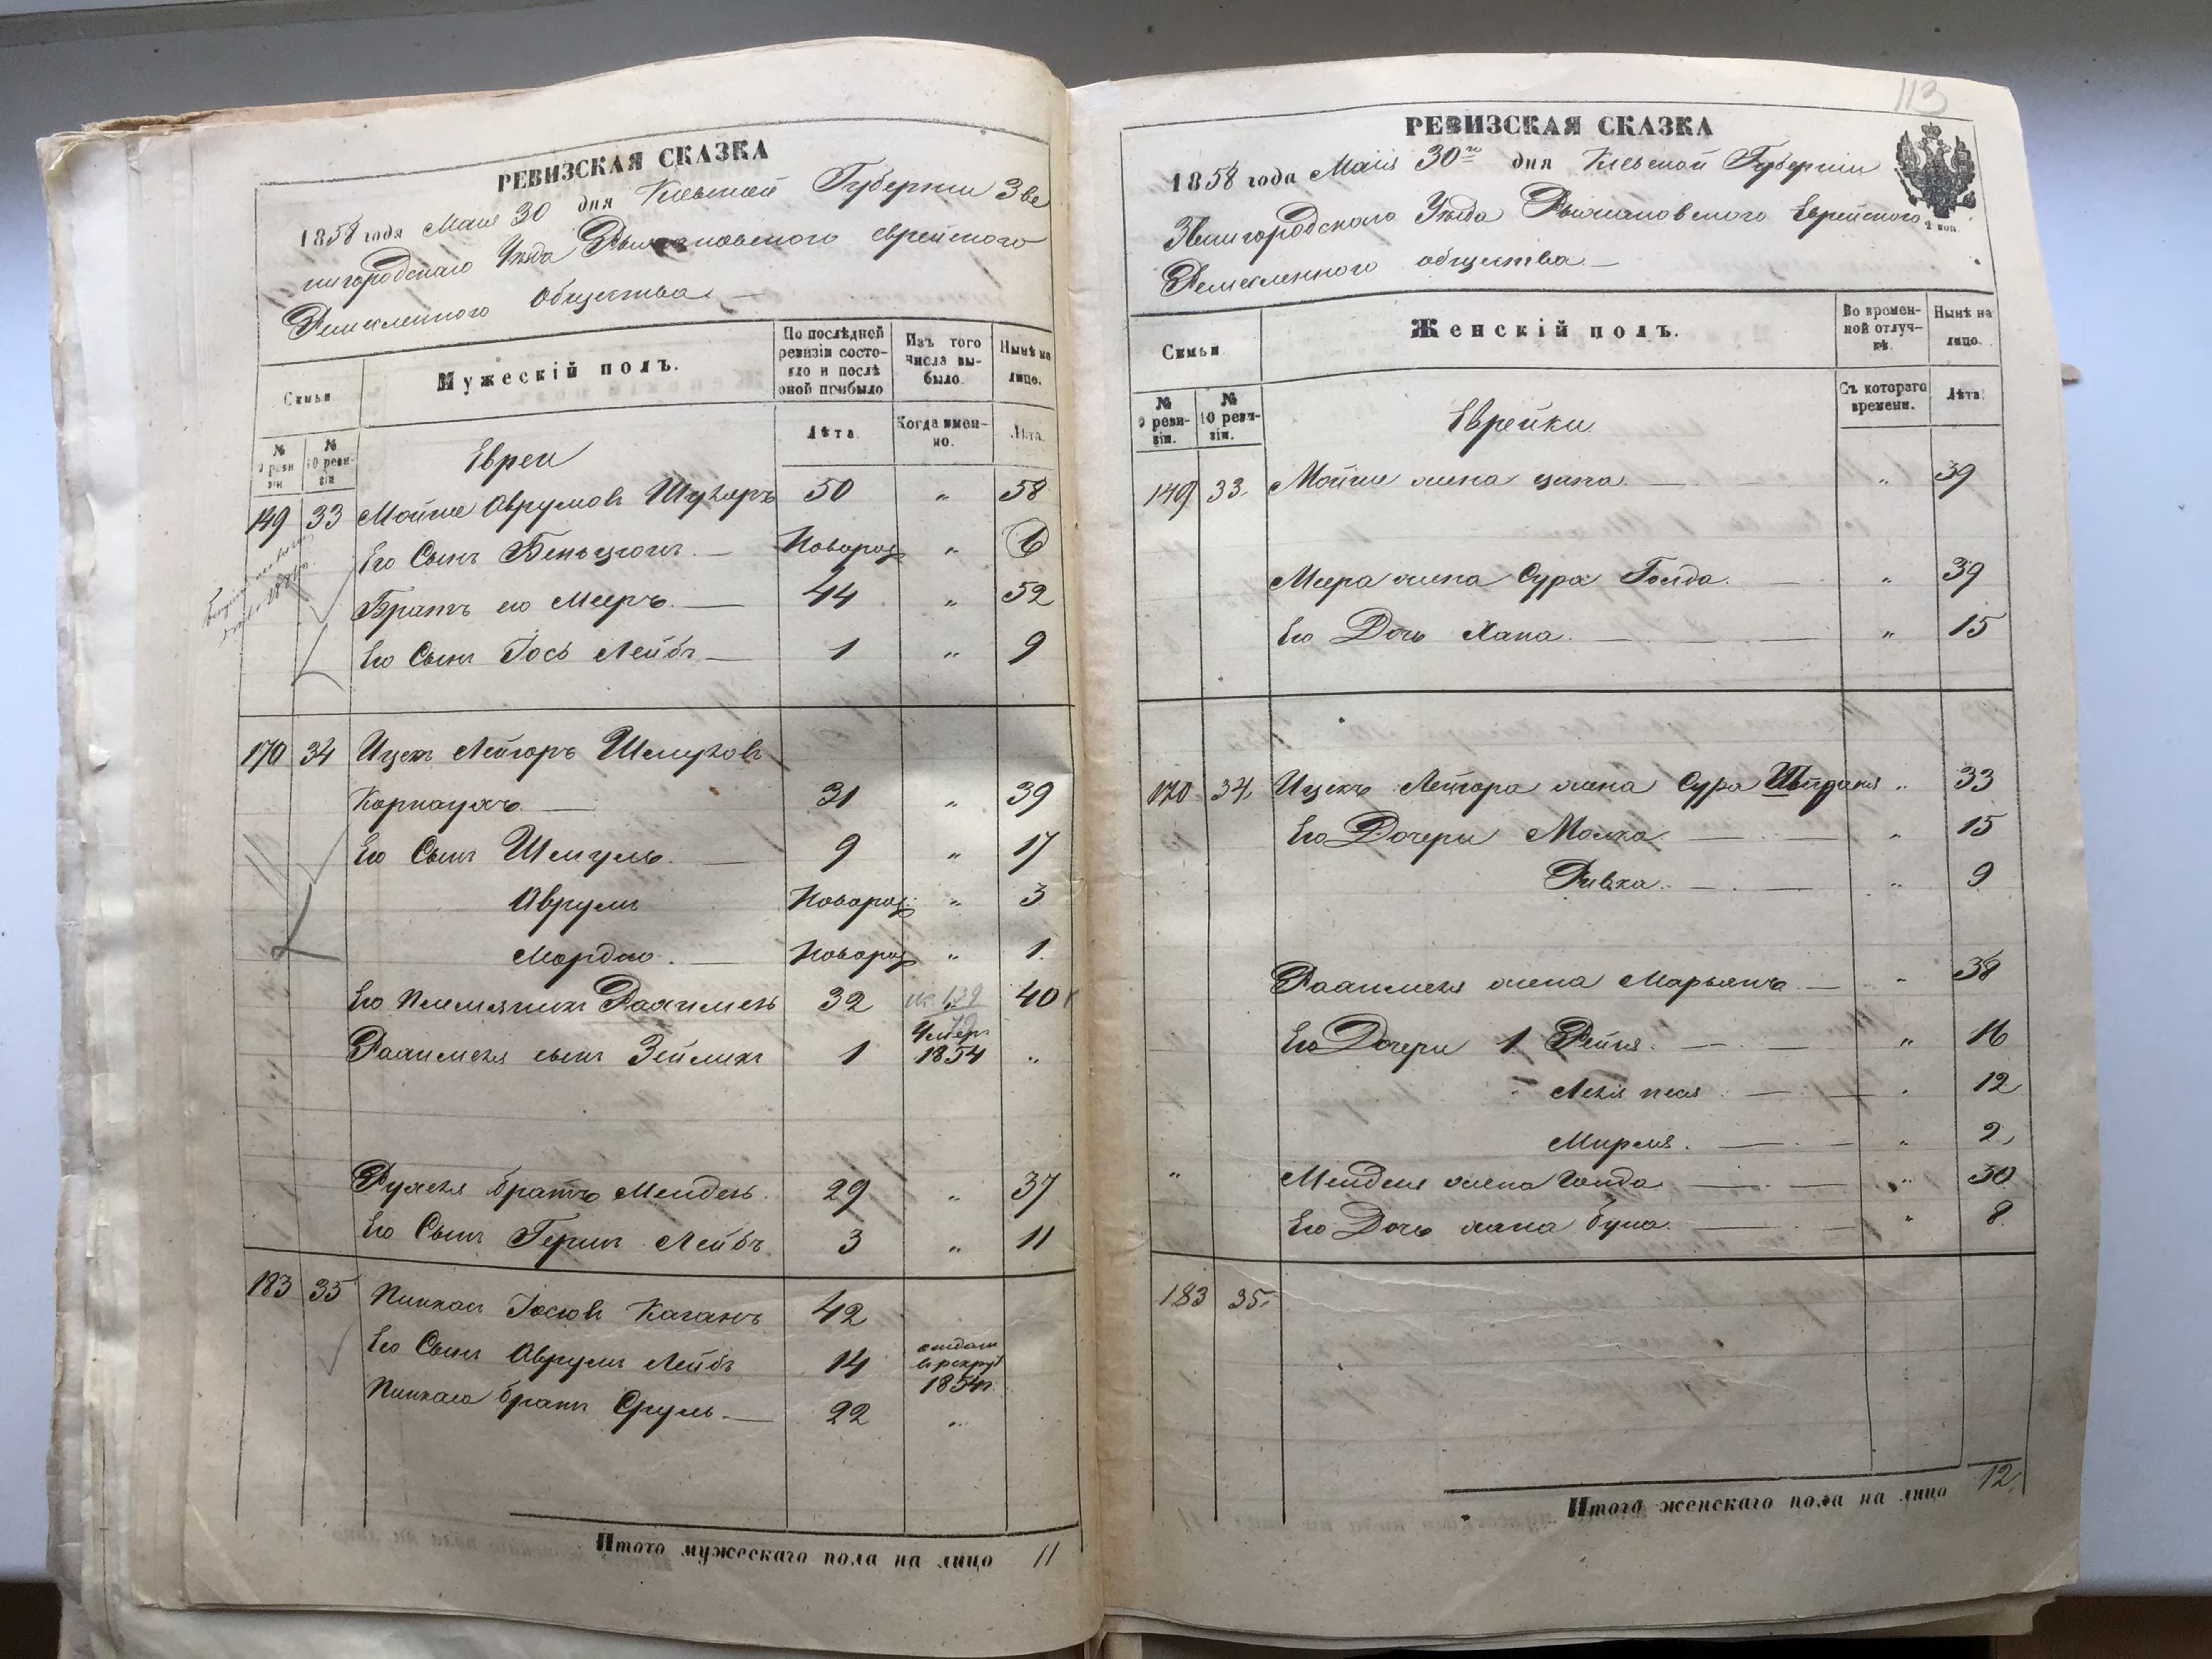 РЕВИЗСКАЯ СКАЗКА
1858 года Маия 30 дня Кіевской Губерніи Зве
нигородскаго Уѣзда Рыжановскаго еврейского
Ремесленного общества. —
Семьи
Мужескій полъ.
По послѣдней ревизіи состояло и послѣ оной прибыло
Изъ того числа выбыло.
Нынѣ на лицо.
№ 9 ревизіи
№ 10 ревизіи
Лѣта.
Когда именно.
Лѣта.
Евреи
149 33 Мойше Аврумовъ 50 „ 58
Его Сынъ Беньционъ. — Новорож „ 6
Братъ его Мееръ. — 44 „ 52
Его Сынъ Іось Лейбъ — 1 „ 9
170 34 Ицекъ Лейзоръ Шмулювъ
Корнаухъ. — 31 „ 39
Его Сынъ Шмуль. — 9 „ 17
Аврумъ Новорож. „ 3
Мордко. — Новорож „ 1.
Его племянникъ Рахмиель 32 40
Рахмиеля сынъ Зейликъ 1 Умер. 1854 „
братъ Мендель. 29 „ 37
Его Сынъ Гершъ Лейбъ 3 „ 11
183 35 Пинхасъ Іосіовъ Каганъ 42
Его Сынъ Аврумъ Лейбъ 14 отданъ в рекрут 1854 г.
Пинхаса братъ Сруль. — 22 „
Итого мужескаго пола на лицо 11
113
РЕВИЗСКАЯ СКАЗКА
1858 года Маія 30го дня Кіевской Губерніи
Звенигородскаго Уѣзда Рыжановского Еврейского
Ремесленного общества —
2 коп.
Семьи
Женскій полъ.
Во временной отлучкѣ.
Нынѣ на лицо.
№ 9 ревизіи.
№ 10 ревизіи.
Съ котораго времени.
Лѣта.
Еврейки
149 33. Мойше жена — „ 39
Меера жена Сура Голда. — „ 39
Его Дочь Хана. — „ 15
170 34. Ицекъ Лейзора жена Сура „ 33
Его Дочери Малка — „ 15
Ривка. — „ 9
Рахмиеля жена Марьямъ. — „ 38
Его Дочери 1 Рейзя. — „ 16
— „ 12
Мирля. — „ 2.
„ Менделя жена Голда — „ 30
Его Дочь — „ 8
183 35.
Итого женскаго пола на лицо 12.